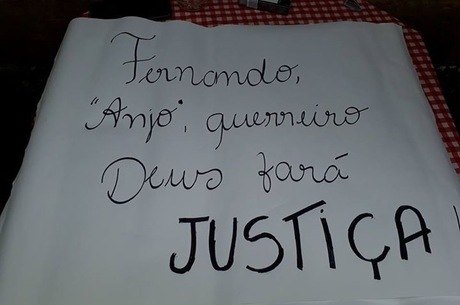 Fernando,
"Anjo", guerreiro
Deus fará
JUSTIÇA!